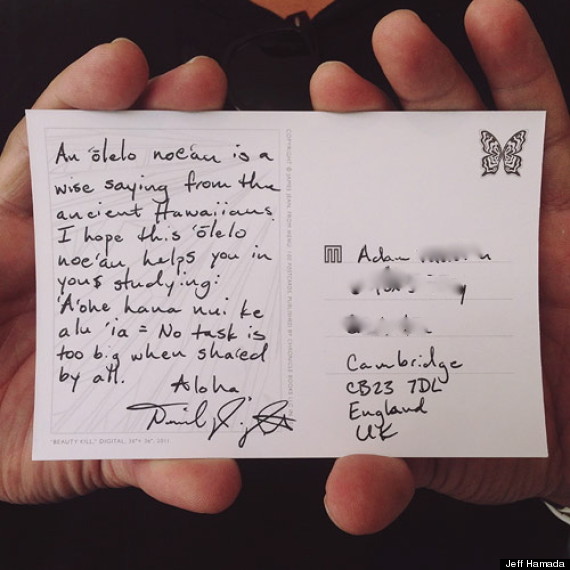 An ʻōlelo noeʻau is a
wise saying from the
ancient Hawaiians.
I hope this ʻōlelo
noeʻau helps you in
your studying:
ʻAʻohe hana nui ke
alu ʻia = No task is
too big when shared
by all.
Aloha
"BEAUTY KILL," DIGITAL, 30"× 36", 2011
COPYRIGHT © JAMES JEAN. FROM
100 POSTCARDS PUBLISHED BY CHRONICLE BOOKS
Adam
Cambridge
CB23 7DL
England
UK
Jeff Hamada